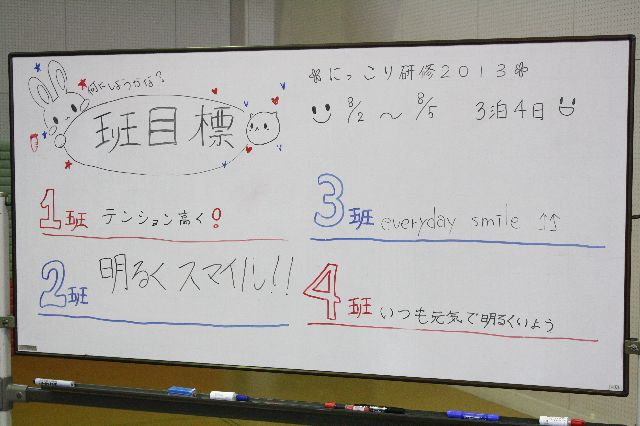 何にしようかな？
班目標
✽にっこり研修2013✽
8/2 〜 8/5 3泊4日
1班 テンション高く！
2班 明るくスマイル！！
3班 everyday smile ↑↑
4班 いつも元気で明るくいよう